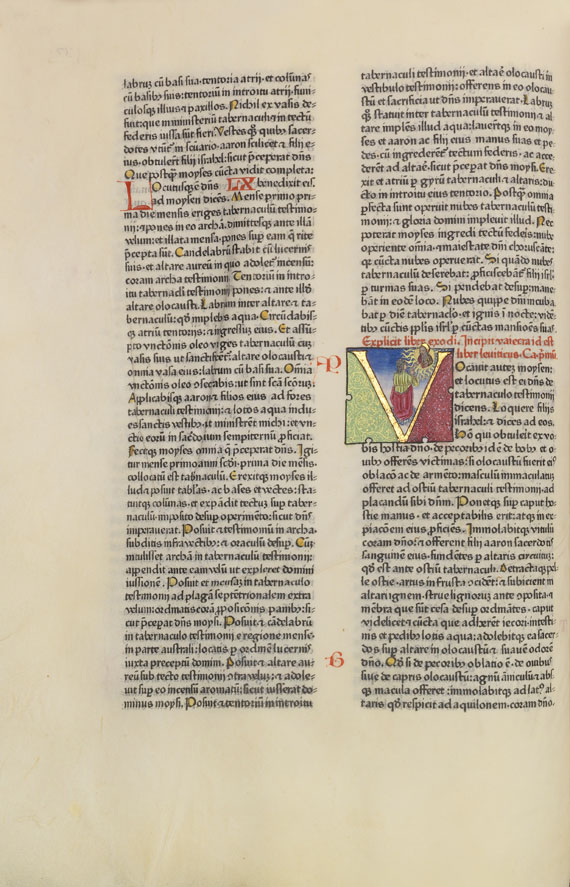 labruz cū basi sua·tentoria atrij·et colūnas
cū basibꝰ suis:tentoriū in introitu atrij:funi-
culosqꝫ illius ⁊ paxillos. Nichil ex vasis de-
fuit:que ministeriū tabernaculi ⁊ in tectū
federis iussa sūt fieri. Vestes qꝫ quibꝰ sacer-
dotes vtūt̄ in scuario·aaron scilicet ⁊ filij e-
ius·obtulerūt filij israhel:sicut p̄ceperat dn̄s
Que postqꝫ moyses cūcta vidit completa:
LOcutusqꝫ dn̄s LX benedixit eis.
ad moysen dicēs. Mense primo pri-
ma die mensis eriges tabernaculū testimo-
nij:⁊ pones in eo archā·dimittesqꝫ ante illā
velum:et illata mensa·pones sup eam q̄ rite
p̄cepta sūt. Candelabrū stabit cū lucernis
suis·et altare aureū in quo adolet̄ incensū:
coram archa testimonij. Tentoriū in intro-
itu tabernac̄li pones:⁊ ante illud
altare olocausti. Labrum inter altare ⁊ ta-
bernaculū:qd̄ implebis aqua. Circūdabis-
qꝫ atriū tentorijs:⁊ ingressus eius. Et assū-
pto vnctōnis oleo vnges tabernaculū cuꝫ
vasis suis ut sanctificent̄:altare olocausti ⁊
omnia vasa eius:labrum cū basi sua. Omīa
vnctōnis oleo ꝯsecrabis:ut sint sc̄a sc̄ōruꝫ:
Applicabisqꝫ aarō ⁊ filios eius ad fores
tabernaculi testimonij:⁊ lotos aqua indu-
es sanctis vestibꝰ:ut ministrēt michi:et vn-
ctio eorū in sac̄doiū sempiternū proficiat.
Fecitqꝫ moyses omīa q̄ p̄ceperat dn̄s. Igi-
tur mense primo anni sc̄di·prima die mēsis·
collocatū est tab̄naculū. Erexitqꝫ moyses il-
lud:⁊ posuit tablas·ac bases et vectes:sta-
tuitqꝫ colūnas·et expādit tectuꝫ sup taber-
naculū·imposito desup operimēto:sicut dn̄s
imperauerat. Posuit ⁊ testimoniū in archa·
subditis infra vectibꝰ:⁊ oraculū desup. Cūqꝫ
intulisset archā in tabernaculū testimonij:
appendit ante eam velū ut expleret domini
iussionē. Posuit et mensaꝫ in tabernaculo
testimonij ad plagā septētrionalem extra
velum:ordinatis coram p̄posicōnis panibꝰ:si-
cut p̄cepat dn̄s moysi. Posuit ⁊ cādelabrū
in tabernaculo testimonij e regione mense·
in parte australi:locatis p ordinē lucernis
iuxta preceptū domini. Posuit ⁊ altare au-
reū sub tecto testimonij ꝯtra veluꝫ:⁊ adole-
uit sup eo incensū aromatū:sicut iusserat do-
minus moysi. Posuit ⁊ tentoriū in introitu
tabernaculi testimonij·et altare olocausti in
vestibulo testimonij:offerens in eo olocau-
stū et sacrificia ut dn̄s imperauerat. Labruꝫ
qꝫ statuit inter tabernaculū testimonij ⁊ al-
tare implēs illud aqua:lauerūtqꝫ in eo moy-
ses et aaron ac filij eius manus suas et pe-
des·cū ingrederēt̄ tectum federis·ac acce-
derēt ad altare·sicut p̄cepat dn̄s moysi. Ere-
xit et atriū p gyrū tabernaculi ⁊ altaris:du-
cto in introitu eius tentorio. Postqꝫ omīa
p̄fecta sunt operuit nubes tabernaculū testi-
monij:⁊ gloria domini impleuit illud. Nec
poterat moyses ingredi tectū federis·nube
operiente omīa:⁊ maiestate dn̄i choruscāte:
qꝫ cūcta nubes operuerat. Si quādo nubes
tabernaculū deserebat:p̄ficisceban̄t filij isrl̄
p turmas suas. Si pendebat desup:mane-
bāt in eodē loco. Nubes quippe dn̄i incuba-
bat p diē tabernac̄lo·et ignis ī nocte:vidē-
tibꝰ cūctis pplis isrl̄ p cūctas mansiōes suas
Explicit liber exodi. Incipit vaiecra id est
liber leuiticus. Ca.pm̄ū.
P VOcauit autez moysen:
et locutus est ei dn̄s de
tabernaculo testimonij
dicens. Loquere filijs
israhel:⁊ dices ad eos.
Hō qui obtulerit ex vo-
bis hostiā dn̄o·de pecoribꝰ id ē de bobꝰ et o-
uibꝰ offerēs victimas:si olocaustū fuerit eiꝰ
oblacō ac de armēto:masculū immaculatū
offeret ad ostiū tabernaculi testimonij·ad
placandū sibi dn̄m. Ponetqꝫ sup caput ho-
stie manus·et acceptabilis erit:atqꝫ in ex-
piacōem eius p̄ficiēs. Immolabitqꝫ vitulū
coram dn̄o:⁊ offerent filij aaron sacerdotes
sanguinē eius·fundētes p altaris circuituꝫ:
qd̄ est ante ostiū tabernac̄li. Detractaqꝫ pel-
le hostie·artus in frusta ꝯcidēt:⁊ subicient in
altari ignem·strue lignorū ante ꝯposita·⁊
mēbra que sūt cesa desup ordinātes·caput
videlicet ⁊ cūcta que adherēt iecori·intesti-
nis et pedibꝰ lotis aqua:adolebitqꝫ ea sacer-
dos sup altare in olocaustū ⁊ suauē odorē
B dn̄o. Qd̄ si de pecoribꝰ oblatio ē·de ouibus
siue de capris olocaustū:agnū āniculū ⁊ abs-
qꝫ macula offeret:immolabitqꝫ ad latꝰ al-
taris qd̄ respicit ad aquilonem·coram dn̄o.